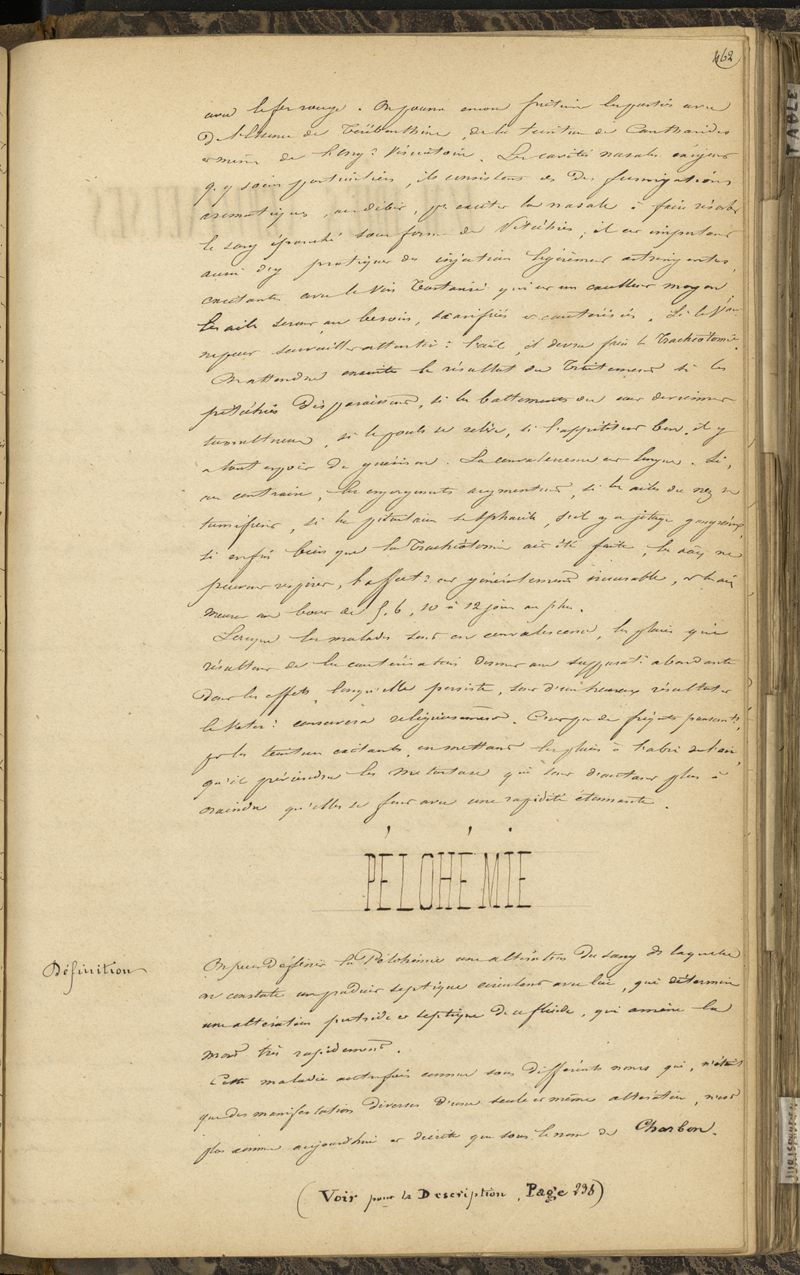 462
avec le fer rouge. On pourra encore faire les parties avec
de l'Essence de Térébenthine, de la teinture de Cantharides
et même de l'ong.t Vésicatoire. Les cavités nasales exigent
q.q soins particuliers, ils consistent en des fumigations
aromatiques, au début, p.r exciter la nasale à faire résorber
le sang épanché sous forme de Pétéchies; il est important
aussi d'y pratiquer des injections légèrement astringentes,
excitantes avec le Vin qui est un excellent moyen
les ailes seront, au besoin, scarifiées et cautérisées. Si le
ne peut surveiller attentiv.t l'œil, il devra faire la Trachéotomie.
On attendra ensuite le résultat du Traitement si les
pétéchies disparaissent, si les battements du cœur deviennent
tumultueux, si le pouls se relève, si l'appétit est bon, il y
a tout espoir de guérison. La convalescence est longue. Si,
au contraire, les engorgements augmentent, si les ailes du nez se
tuméfient, si la pituitaire se sphacèle, s'il y a jetage gangréneux,
si enfin bien que la Trachéotomie ait été faite, les ne
peuvent respirer, l'affect.n est généralement incurable, et
meurt au bout de 5, 6, 10 à 12 jours au plus.
Lorsque les malades sont en convalescence, les plaies qui
résultent de la cautérisation donnent une suppurat.n abondante
dont les effets, lorsqu'elle persiste, sont d'un heureux résultat
le Vétér.e conservera religieusement. Ce n'est que de fréquents pansem.ts
p.r les teintures excitantes, en mettant les plaies à l'abri de l'air,
qu'il préviendra les métastases qui sont d'autant plus à
craindre qu'elles se font avec une rapidité étonnante.
PÉLOHÉMIE
Définition
On peut définir la Pélohémie une altération du sang ds laquelle
on constate un produit septique circulant avec lui, qui détermine
une altération putride et septique de ce fluide, qui amène la
mort très rapidement.
Cette maladie autrefois connue sous différents noms qui, n'était
que des manifestations diverses d'une seule et même altération, n'est
plus connue aujourd'hui et décrite que sous le nom de Charbon.
(Voir pour la Description, Page 298)
TABLE
JURISPRUDENCE